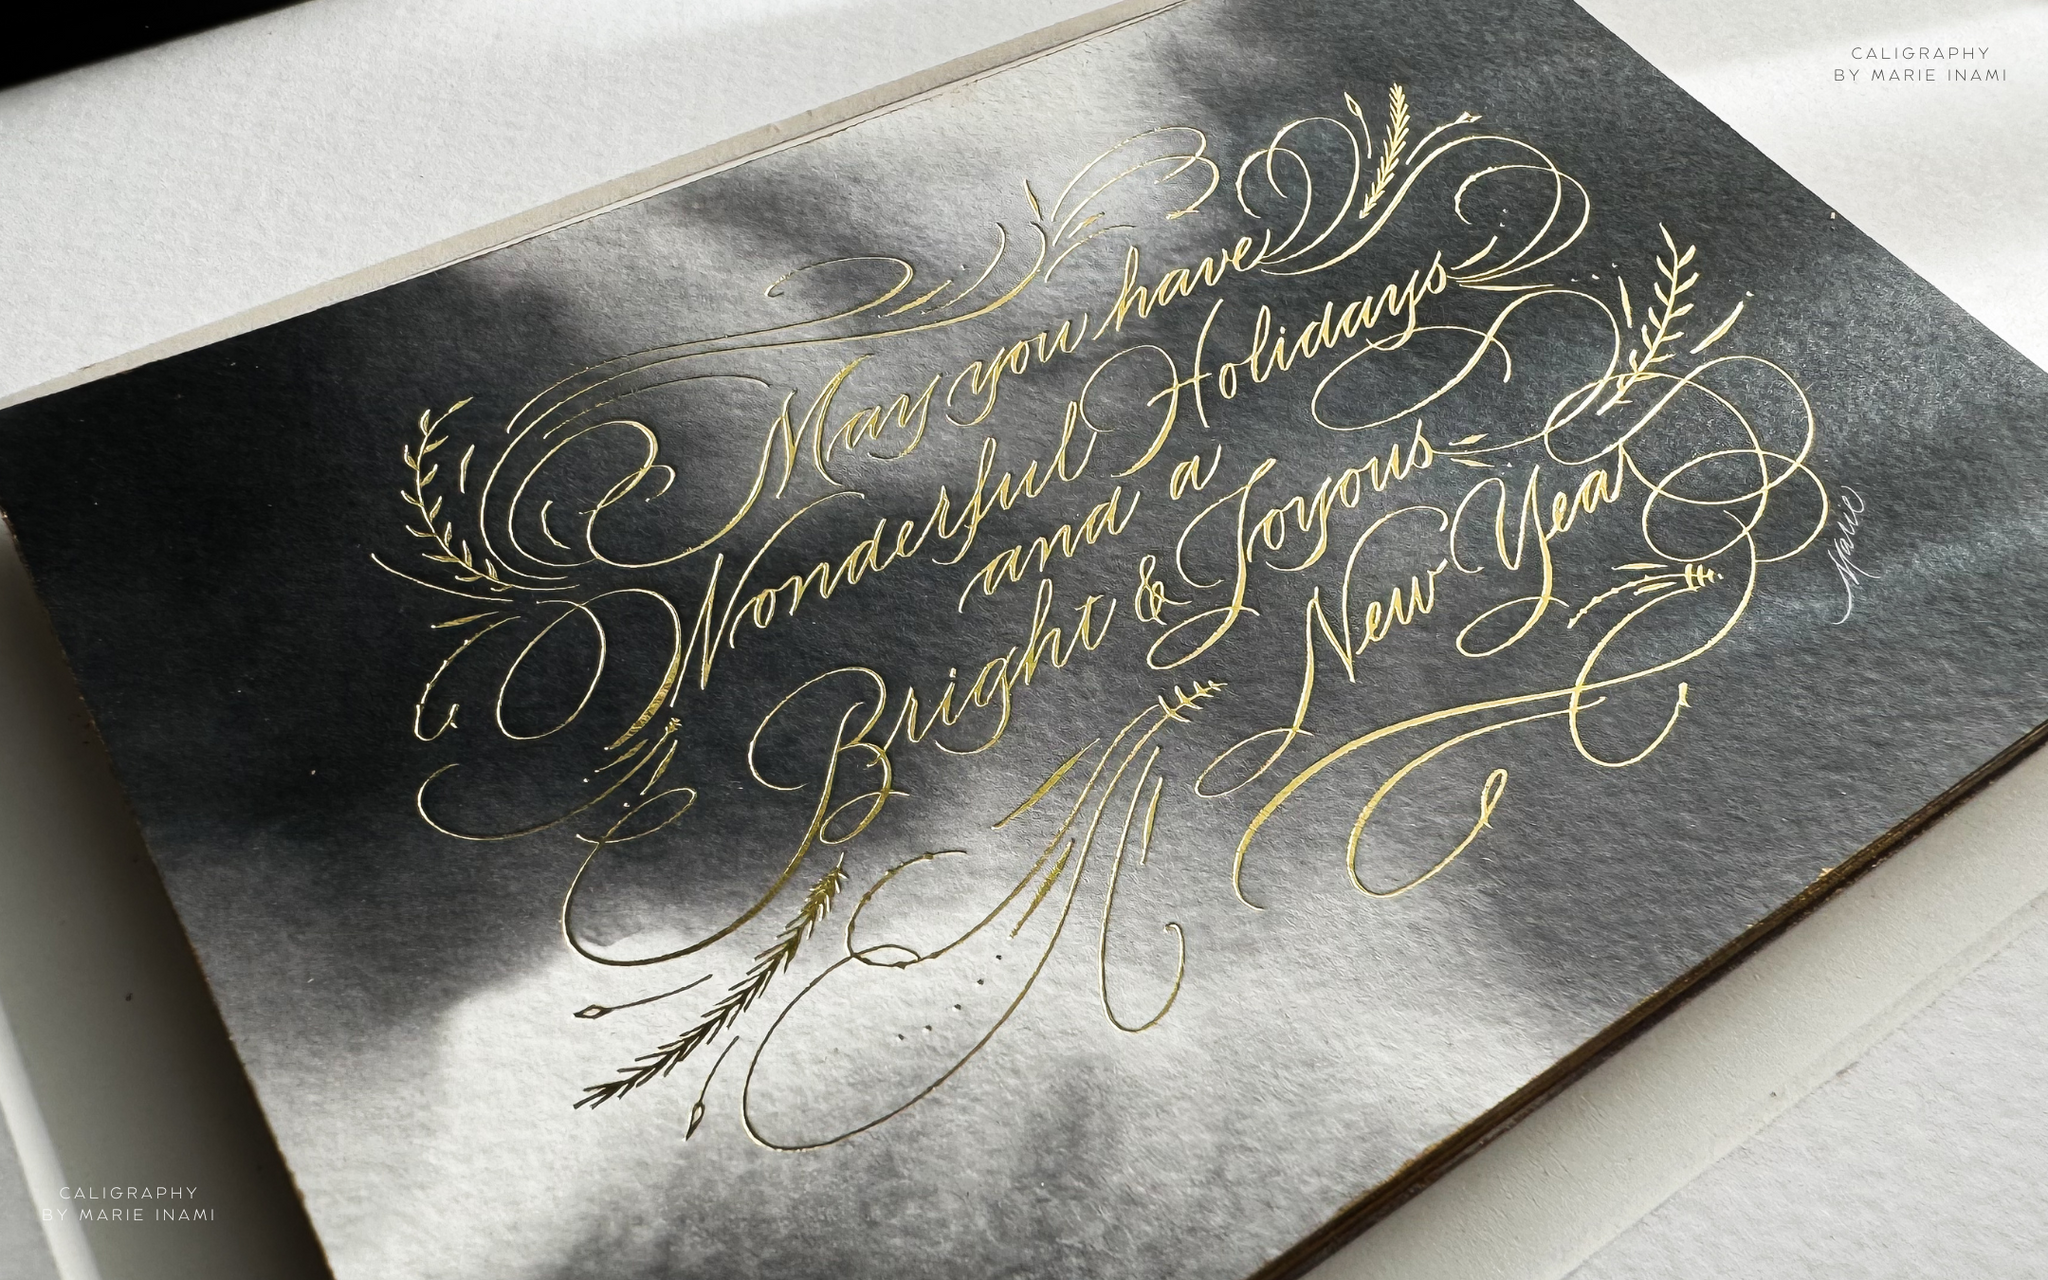 CALIGRAPHY
BY MARIE INAMI
May you have
Wonderful Holidays
and a
Bright & Joyous
New Year
Marie
CALIGRAPHY
BY MARIE INAMI